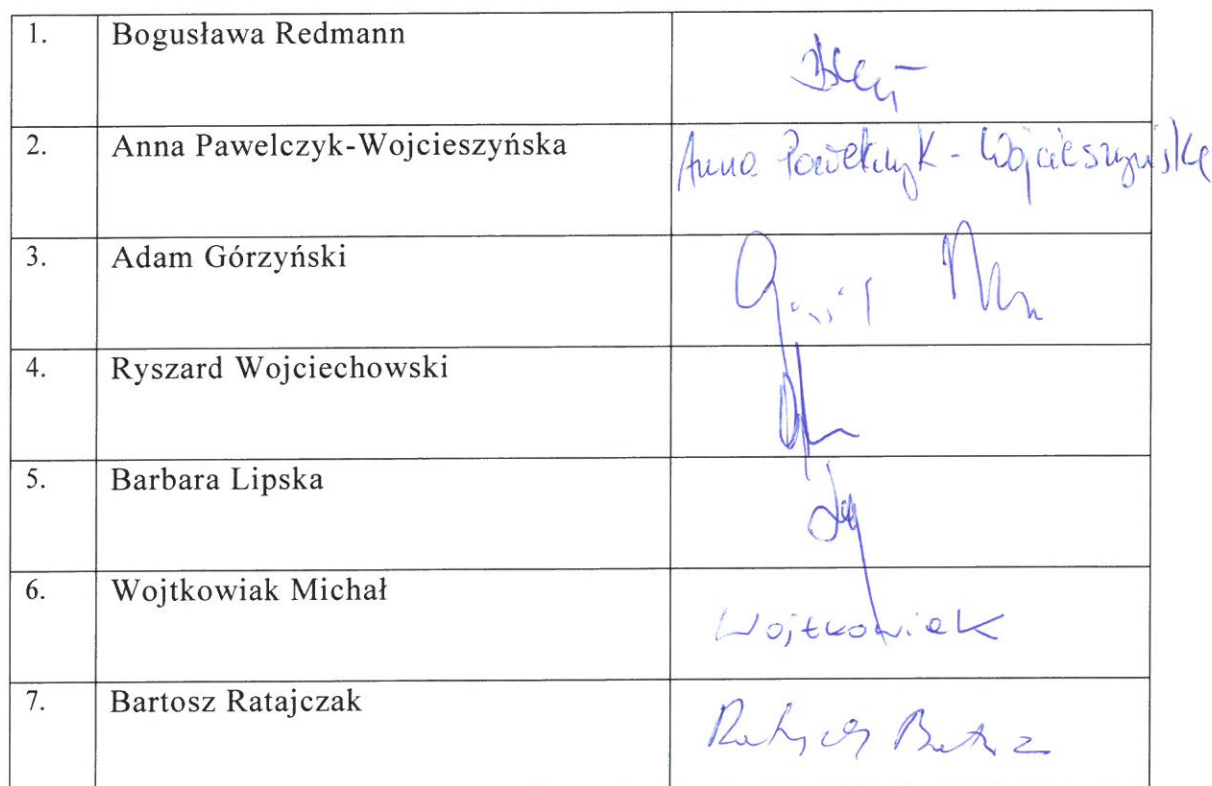 1. Bogusława Redmann
2. Anna Pawelczyk-Wojcieszyńska Anna Pawelczyk-Wojcieszyńska
3. Adam Górzyński
4. Ryszard Wojciechowski
5. Barbara Lipska
6. Wojtkowiak Michał Wojtkowiak
7. Bartosz Ratajczak